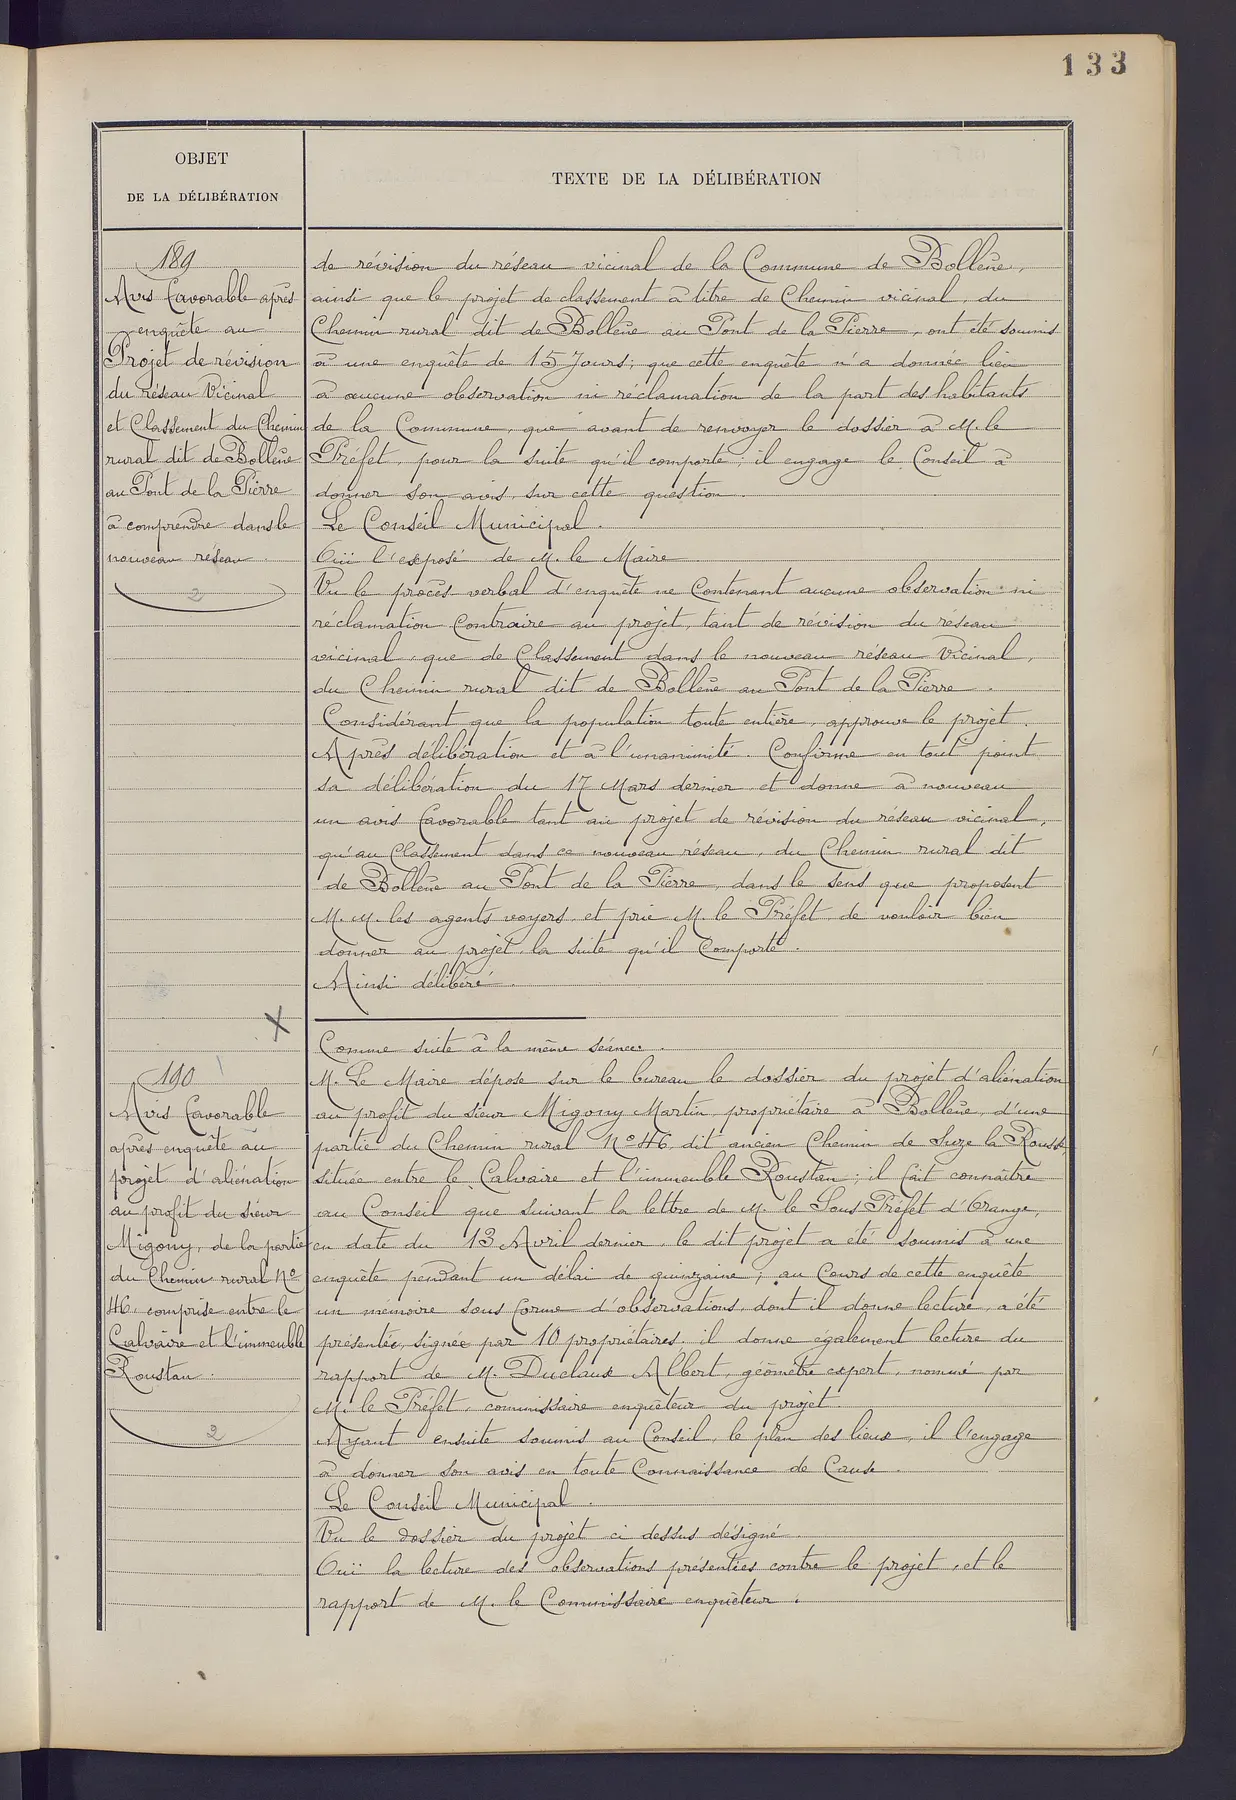 133
OBJET
DE LA DÉLIBÉRATION
TEXTE DE LA DÉLIBÉRATION
189
Avis favorable après
enquête au
Projet de révision
du réseau Vicinal
et Classement du Chemin
rural dit de Bollène
au Pont de la Pierre
à comprendre dans le
nouveau réseau.
2
de révision du réseau vicinal de la Commune de Bollène,
ainsi que le projet de classement à titre de Chemin vicinal, du
Chemin rural dit de Bollène au Pont de la Pierre, ont été soumis
à une enquête de 15 Jours; que cette enquête n'a donnée lieu
à aucune observation ni réclamation de la part des habitants
de la Commune, que avant de renvoyer le dossier à M. le
Préfet, pour la suite qu'il comporte; il engage le Conseil à
donner son avis, sur cette question.
Le Conseil Municipal.
Ouï l'exposé de M. le Maire
Vu le procès-verbal d'enquête ne Contenant aucune observation ni
réclamation Contraire au projet, tant de révision du réseau
vicinal, que de Classement dans le nouveau réseau Vicinal,
du Chemin rural dit de Bollène au Pont de la Pierre.
Considérant que la population toute entière, approuve le projet.
Après délibération et à l'unanimité. Confirme en tout point
sa délibération du 17 Mars dernier et donne à nouveau
un avis favorable tant au projet de révision du réseau vicinal,
qu'au Classement dans ce nouveau réseau, du Chemin rural dit
de Bollène au Pont de la Pierre, dans le sens que proposent
M. M. les agents voyers et prie M. le Préfet, de vouloir bien
donner au projet, la suite qu'il Comporte.
Ainsi délibéré.
X
190
Avis favorable
après enquête au
projet d'aliénation
au profit du sieur
Migony, de la partie
du Chemin rural No
46, comprise entre le
Calvaire et l'immeuble
Roustan.
2
Comme suite à la même séance.
M. Le Maire dépose sur le bureau le dossier du projet d'aliénation
au profit du sieur Migony Martin, propriétaire à Bollène, d'une
partie du Chemin rural No 46, dit ancien Chemin de Suze la Rousse,
située entre le Calvaire et l'immeuble Roustan; il fait connaître
au Conseil que suivant la lettre de M. le Sous Préfet d'Orange,
en date du 13 Avril dernier, le dit projet a été soumis à une
enquête pendant un délai de quinzaine; au Cours de cette enquête
un mémoire sous forme d'observations, dont il donne lecture, a été
présentée, signée par 10 propriétaires, il donne également lecture du
rapport de M. Duclaux Albert, géomètre expert, nommé par
M. le Préfet, commissaire enquêteur du projet.
Ayant ensuite soumis au Conseil, le plan des lieux, il l'engage
à donner son avis en toute Connaissance de Cause.
Le Conseil Municipal.
Vu le dossier du projet ci dessus désigné.
Ouï la lecture des observations présentées contre le projet, et le
rapport de M. le Commissaire enquêteur.